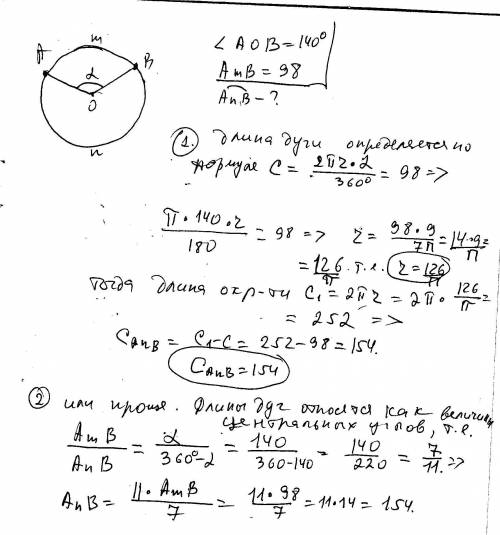 m
A
B
α
O
n
∠AOB = 140°
AmB = 98
AnB - ?
1. Длина дуги определяется по
формуле C = 2πr·α / 360° = 98 =>
π·140·r / 180 = 98 => r = 98·9 / 7π = 14·9 / π =
= 126 / π т.е. r = 126 / π
тогда длина окр-ти C₁ = 2πr = 2π · 126 / π =
= 252 =>
CAnB = C₁-C = 252-98 = 154.
CAnB = 154
2 или проще. Длины дуг относятся как величины
центральных углов, т.е.
AmB / AnB = α / 360°-α = 140 / 360-140 = 140 / 220 = 7 / 11 =>
AnB = 11·AmB / 7 = 11·98 / 7 = 11·14 = 154.